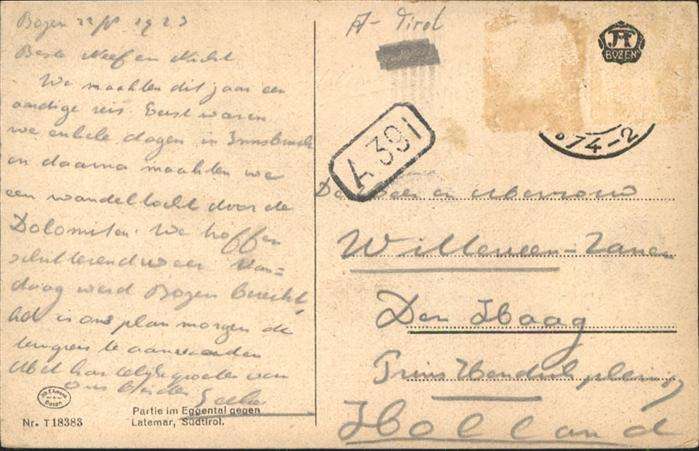 Bozen 22/8 1923
Beste Neef en Nicht
We maakten dit jaar een
aardige reis. Eerst waren
we enkele dagen in Innsbruck
en daarna maakten we
een wandeltocht door de
Dolomiten. We troffen
schitterend weer. Van-
daag werd Bozen bereikt,
het is ons plan morgen de
terugreis te aanvaarden
Met hartelijke groeten van
ons beiden
Partie im Eggental gegen
Latemar, Südtirol.
Nr. T 18383
A-Tirol
JF
BOZEN
74-2
A 391
De Heer en Mevrouw
Willemsen-
Den Haag
Prins Hendrikplein
Holland